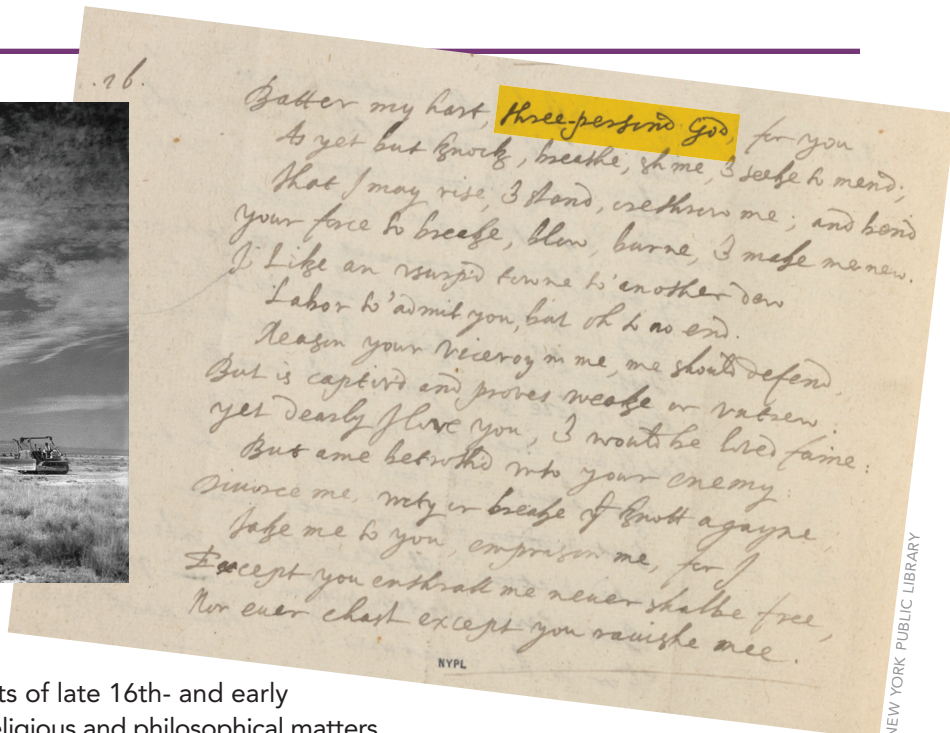 .16.
Batter my hart, three-persind God, for you
As yet but knock, breathe, shine, & seeke to mend;
That I may rise, & stand, orethrow me; and bend
your force to breake, blow, burne, & make me new.
I Like an vsurp'd towne to'another dew
Labor to'admit you, but oh to no end.
Reason your viceroy in me, me should defend,
But is captiv'd and proves weake or vntrew.
yet dearly I love you, & would be lov'd faine:
But ame betroth'd vnto your enemy:
Divorce me, vnty or breake yt knott agayne,
Take me to you, emprison me, for I
Except you enthrall me never shalbe free,
Nor ever chast except you ravishe mee.
NYPL
NEW YORK PUBLIC LIBRARY
ts of late 16th- and early
eligious and philosophical matters